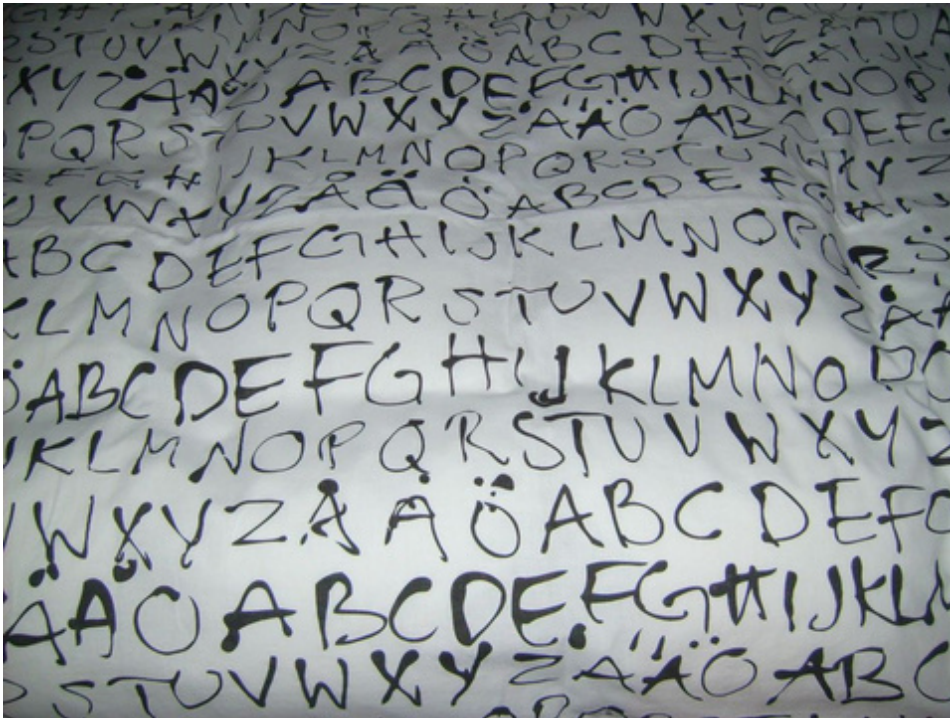 RSTUVW ZÅÄÖABCDEF
XYZÅÄÖ ABCDEFGHIJKLMNOP
PQRST UVWXYZÅÄÖ ABC DEFG
EFGH IJKLMNOPQRSTUVWXYZ
UVWXYZÅÄÖ ABCDEFG HI
ABC DEFGHIJKLMNOPQRS
KLMNOPQRSTUVWXYZÅÄ
ÖABCDEFGHIJKLMNOP
JKLMNOPQRSTUVWXYZ
VWXYZÅÄÖABCDEFG
ÅÄÖABCDEFGHIJKLM
RSTUVWXYZÅÄÖ ABC